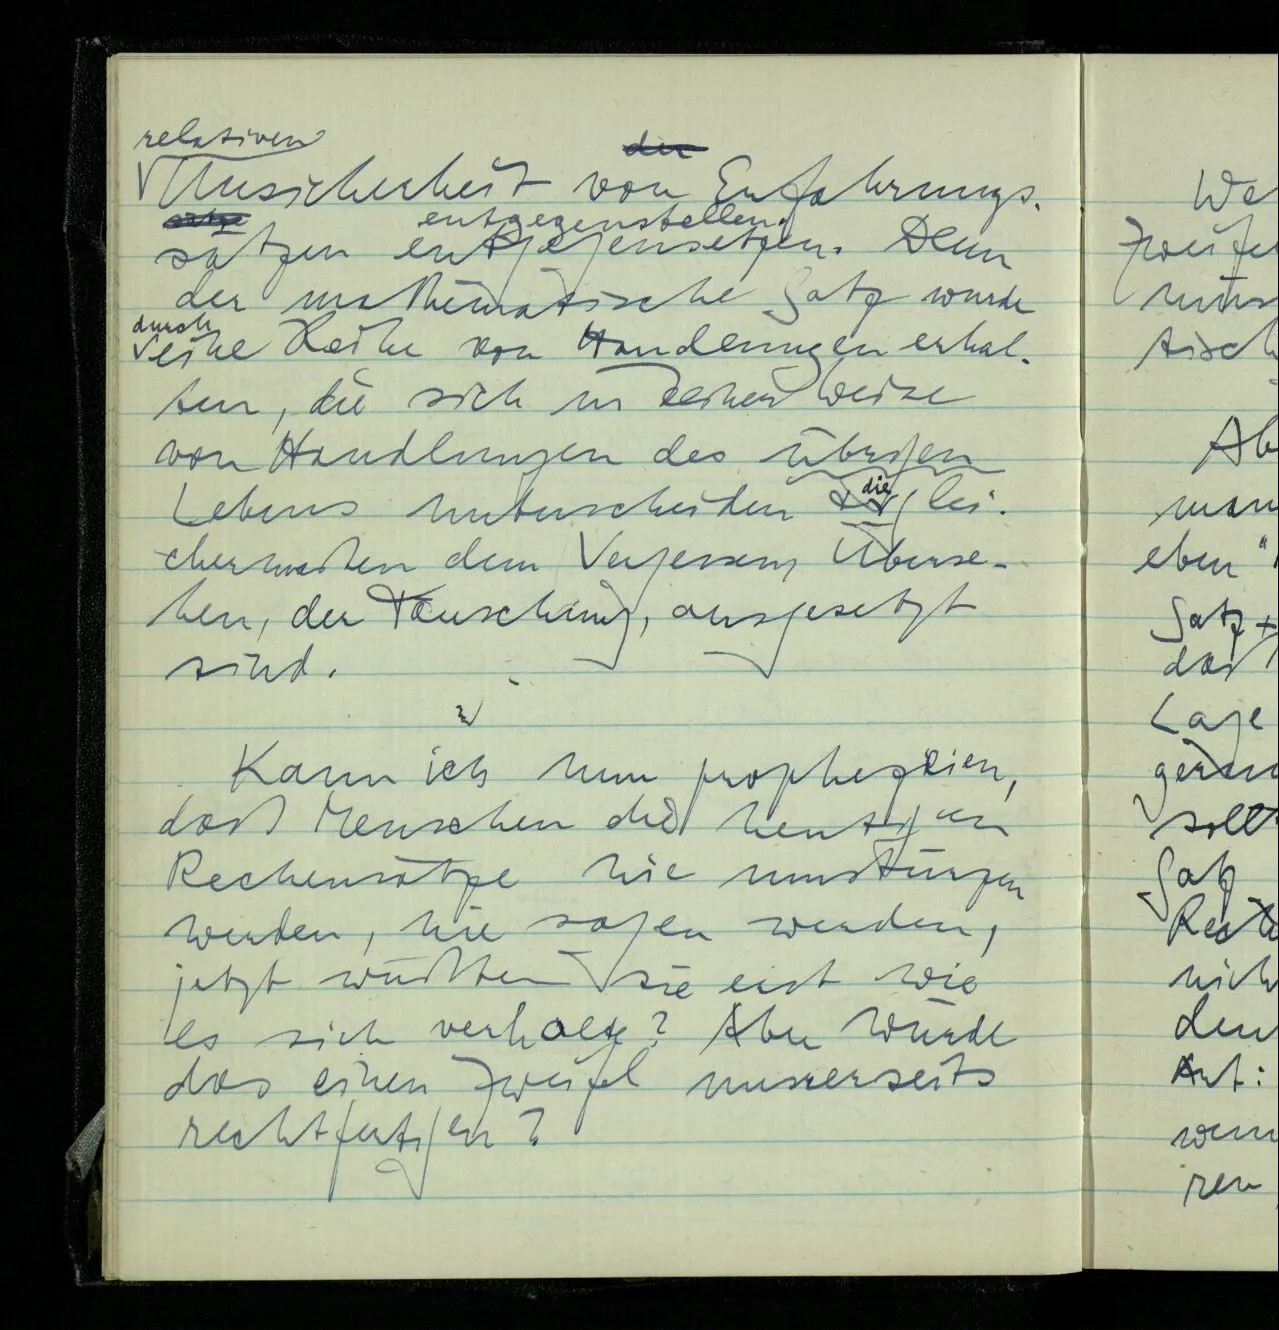 relativen
Unsicherheit von der Erfahrungs-
sätzen entgegensetzen. Denn
entgegenstellen.
der mathematische Satz wurde
durch
eine Reihe von Handlungen erhal-
ten, die sich in keiner Weise
von Handlungen des übrigen
Lebens unterscheiden & die glei-
chermaßen dem Vergessen, Überse-
hen, der Täuschung, ausgesetzt
sind.
Kann ich nun prophezeien,
daß Menschen die heutigen
Rechensätze nie umstürzen
werden, nie sagen werden,
jetzt wüßten sie erst wie
es sich verhalte? Aber würde
das einen Zweifel unserseits
rechtfertigen?
We
Zweife
müss
tisch
Ab
man
eben "
Satz
das
Lage
sollt
Satz
nich
den
Art:
wenn
ren